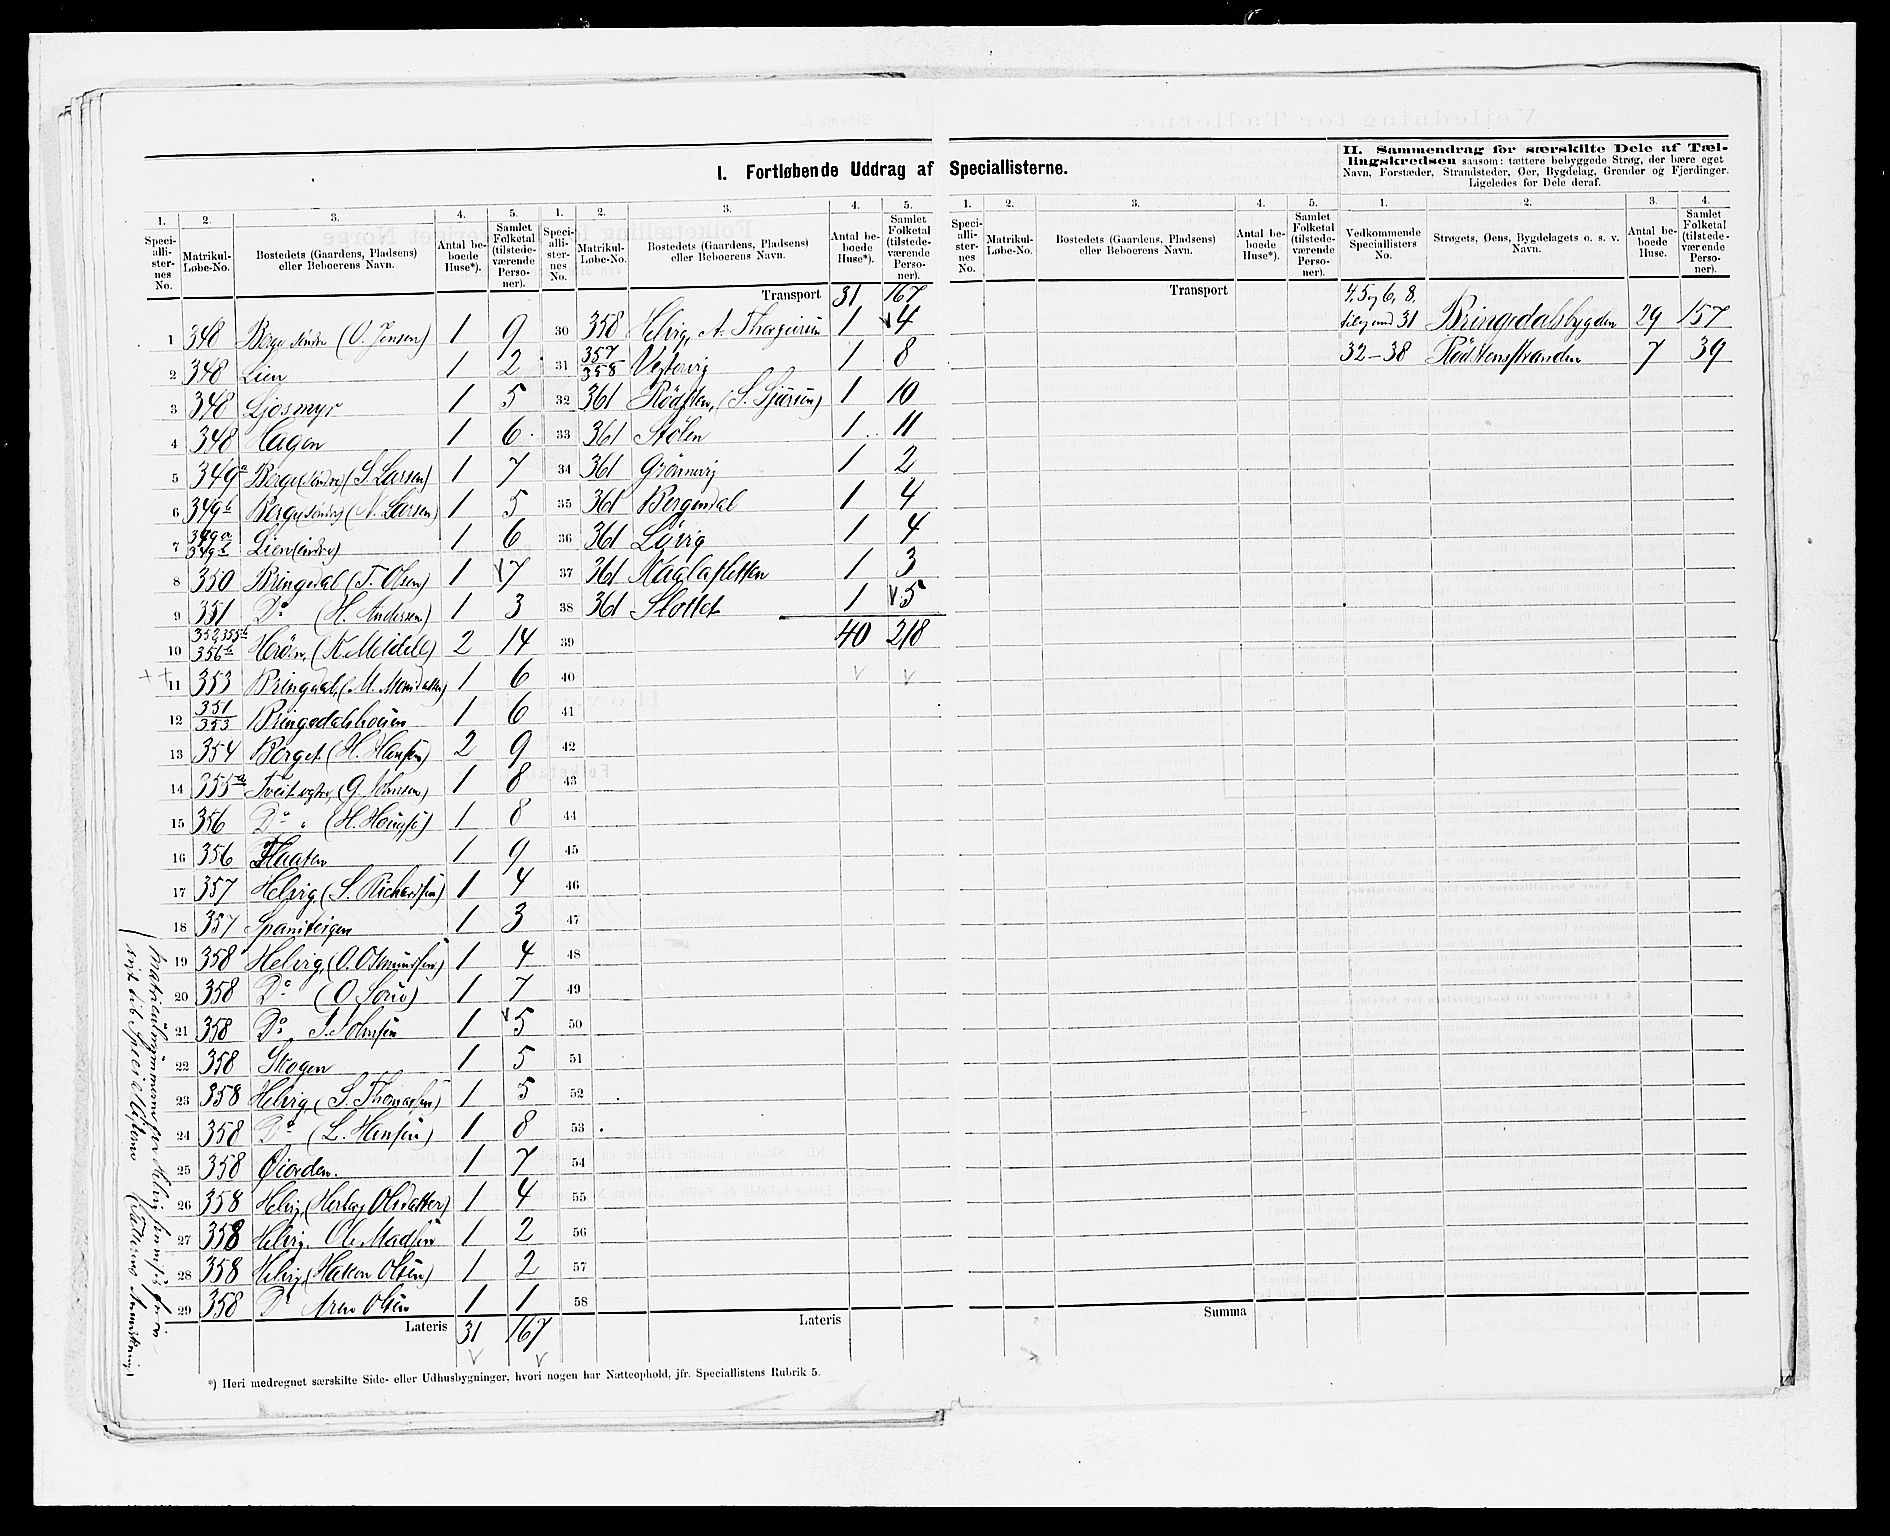 I. Fortløbende Uddrag af Speciallisterne.
II. Sammendrag for særskilte Dele af Tæl-
lingskredsen saasom: tættere bebyggede Strøg, der bære eget
Navn, Forstæder, Strandsteder, Øer, Bygdelag, Grender og Fjerdinger.
Ligeledes for Dele deraf.
1. 2. 3. 4. 5. 1. 2. 3. 4. 5.
Speciallisternes No. Matrikul-Løbe-No. Bostedets (Gaardens, Pladsens) eller Beboerens Navn. Antal beboede Huse*). Samlet Folketal (tilstedeværende Personer).
Speciallisternes No. Matrikul-Løbe-No. Bostedets (Gaardens, Pladsens) eller Beboerens Navn. Antal beboede Huse*). Samlet Folketal (tilstedeværende Personer).
Transport 31 167
1 348 Berge søndre (O. Jensen) 1 9
2 348 Lien 1 2
3 348 Ljosmyr 1 5
4 348 Hagen 1 6
5 349a Berge (søndre) (S. Larsen) 1 7
6 349b Berge (søndre) (N. Larsen) 1 5
7 349a 349b Lien (søndre) 1 6
8 350 Bringedal (T. Olsen) 1 7
9 351 Do (H. Andersen) 1 3
10 352, 355b 356b (K. Meidell) 2 14
11 353 Bringdal, (M. Monsdatter) 1 6
12 351 353 Bringedalshoien 1 6
13 354 Berget (H. Hansen) 2 9
14 355a (G. Johnsen) 1 8
15 356 Do " 1 8
16 356 Flaaten 1 9
17 357 Helvig (S. Richardsen) 1 4
18 357 1 3
19 358 Helvig, (O. Osmundsen) 1 4
20 358 Do 1 7
21 358 Do J. Johnsen 1 5
22 358 Skogen 1 5
23 358 Helvig, (S. Thomassen) 1 5
24 358 Do (L. Hansen) 1 8
25 358 Øiorden. 1 7
26 358 Helvig (Herborg Olsdatter) 1 4
27 358 Helvig. Ole Madsen 1 2
28 358 Helvig, (Hakon Olsen) 1 2
29 358 Do Arne Olsen 1 1
Lateris 31 167
30 358 Helvig, A. Thorgeirsen 1 4
31 357 358 Vestervig 1 8
32 361 Rødsten, (S. Sjursen) 1 10
33 361 Stølen 1 11
34 361 Grønnevig 1 2
35 361 Bergendal 1 4
36 361 Løvvig 1 4
37 361 1 3
38 361 Slottet 1 5
39 40 218
40
41
42
43
44
45
46
47
48
49
50
51
52
53
54
55
56
57
58
Lateris
1. 2. 3. 4. 5.
Speciallisternes No. Matrikul-Løbe-No. Bostedets (Gaardens, Pladsens) eller Beboerens Navn. Antal beboede Huse*). Samlet Folketal (tilstedeværende Personer).
Transport
Summa
1. 2. 3. 4.
Vedkommende Speciallisters No. Strøgets, Øens, Bygdelagets o. s. v. Navn. Antal beboede Huse. Samlet Folketal (tilstedeværende Personer).
4, 5 og 6, 8,
til og med 31 Bringedalsbygden 29 157
32-38 Rødstensstranden 7 39
*) Heri medregnet særskilte Side- eller Udhusbygninger, hvori nogen har Natteophold, jfr. Speciallistens Rubrik 5.